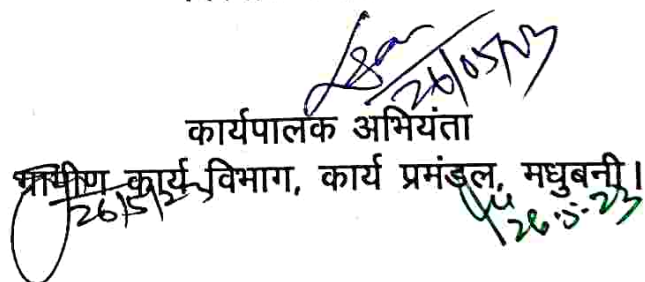 26/05/23
कार्यपालक अभियंता
ग्रामीण कार्य विभाग, कार्य प्रमंडल, मधुबनी।
26/5/23
26.5.23